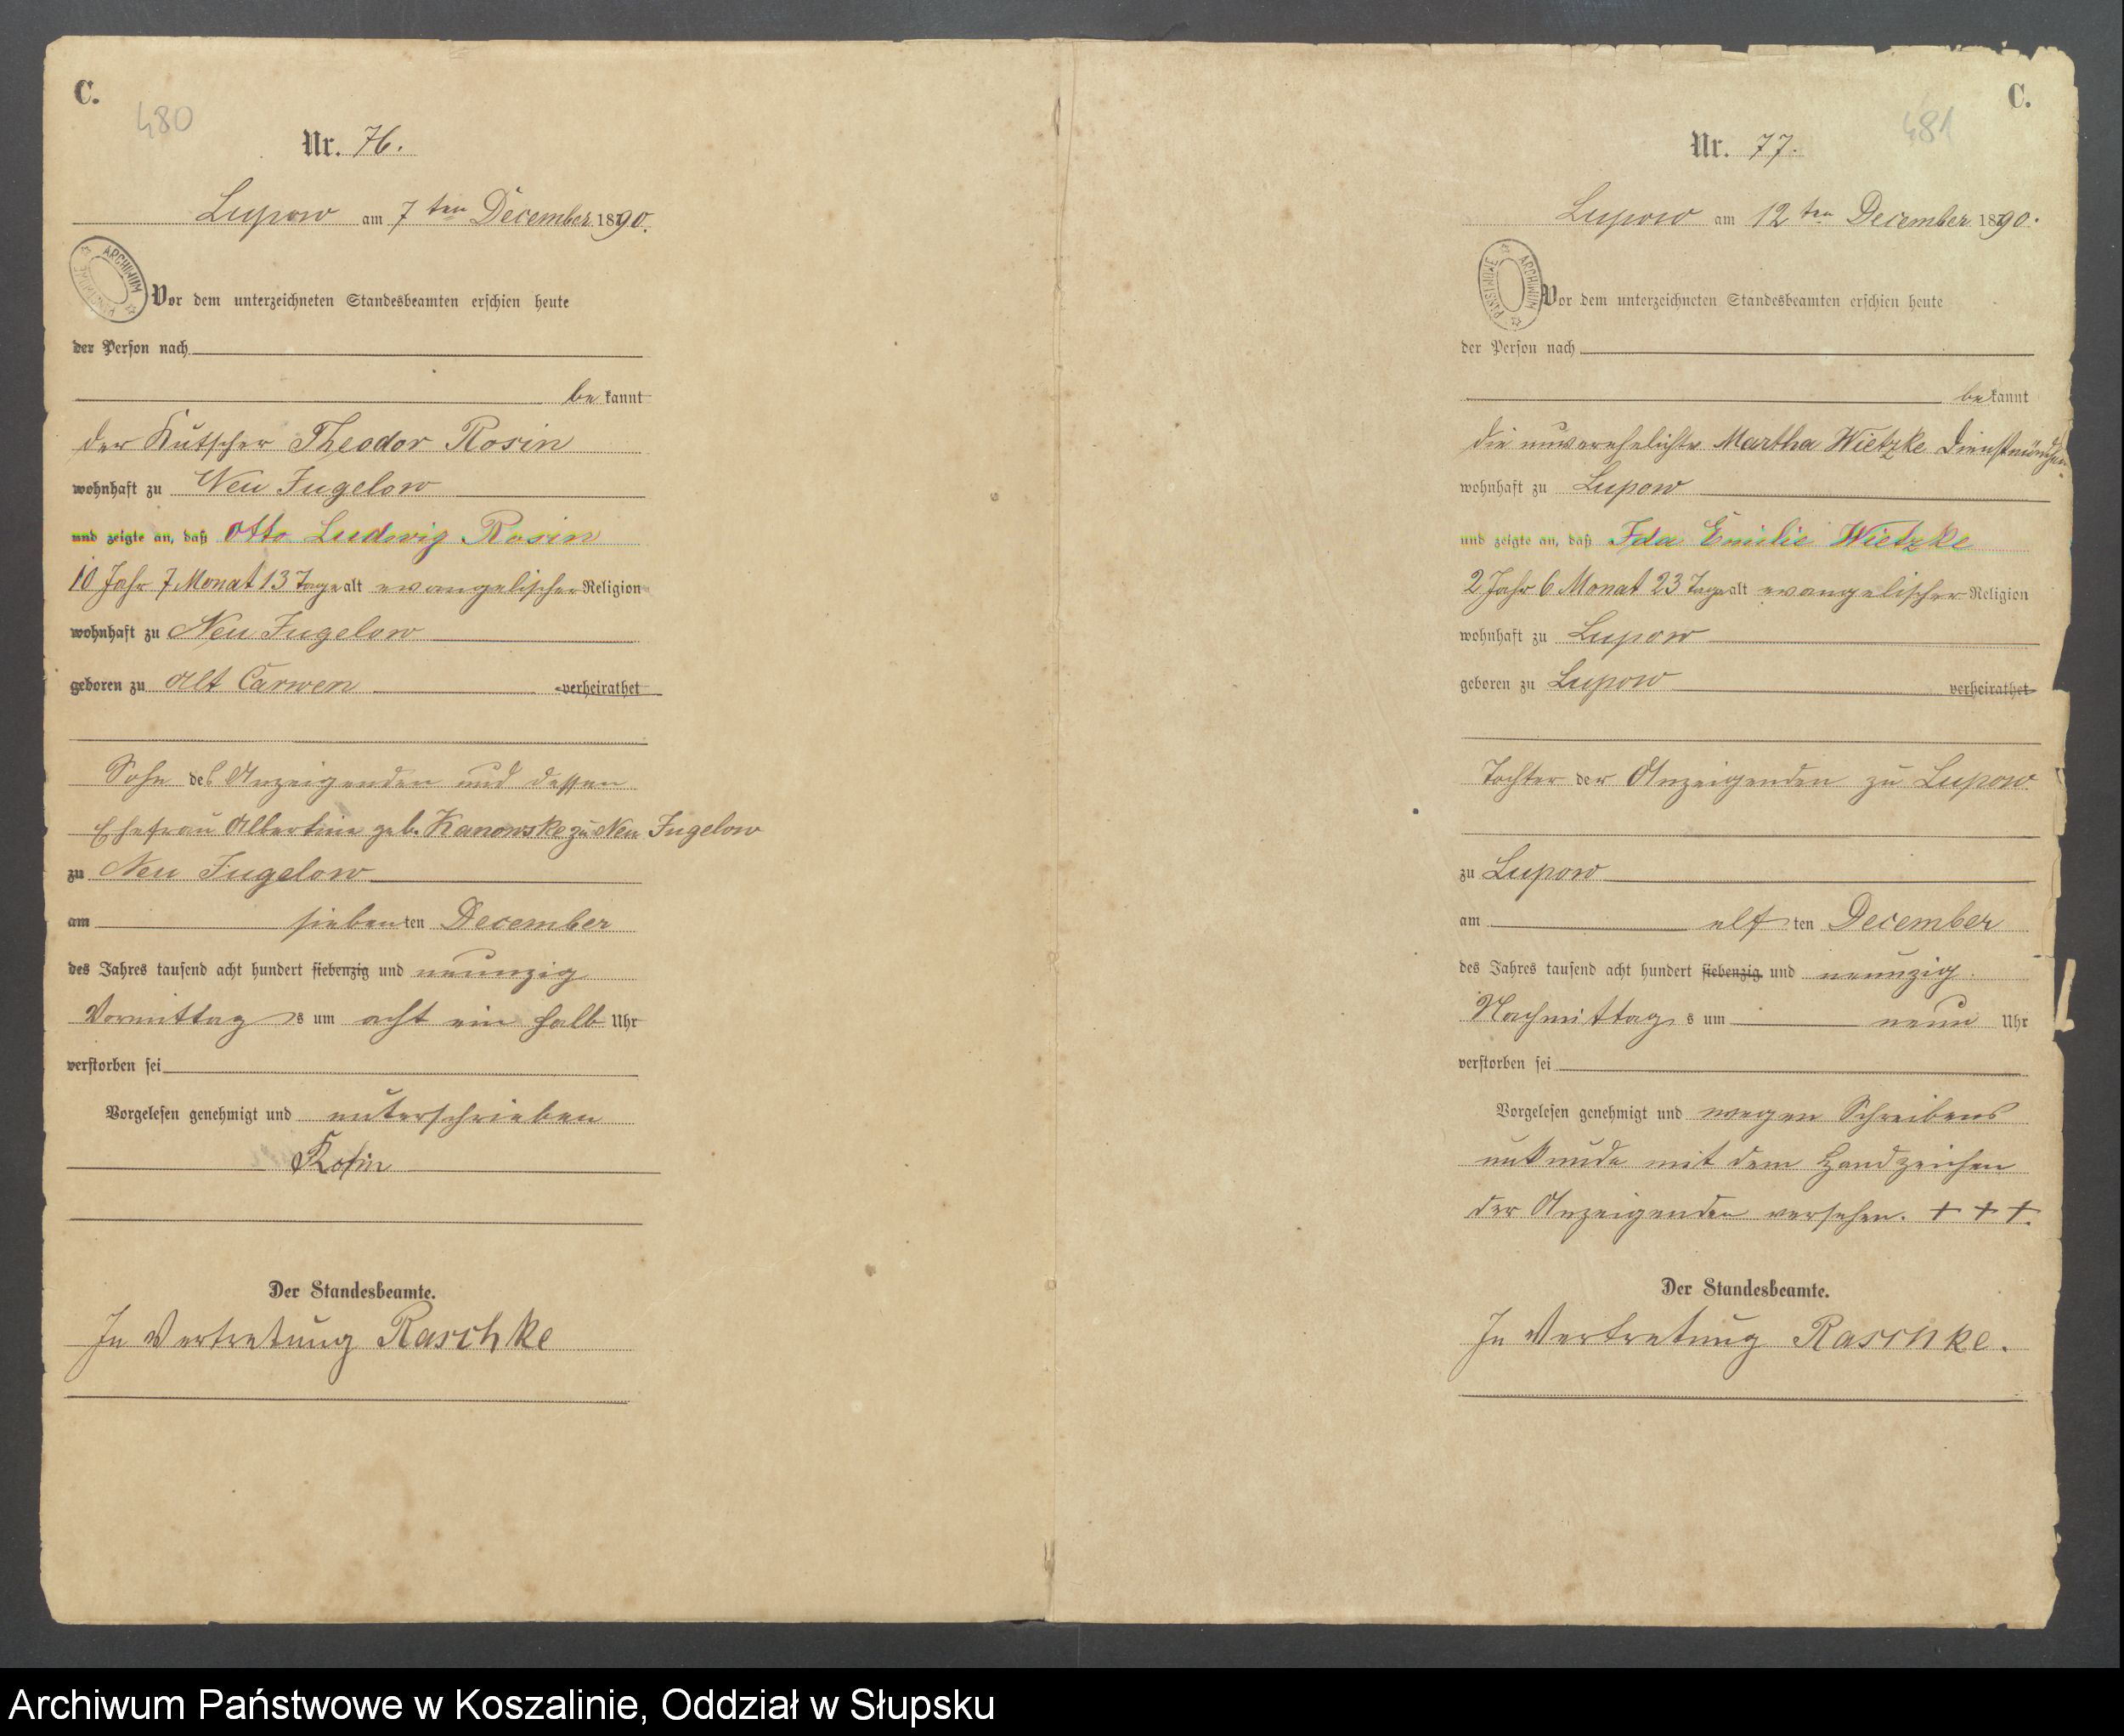 C.
480
Nr. 76.
Lupow am 7 ten December 1890.
ARCHIWUM PAŃSTWOWE
Vor dem unterzeichneten Standesbeamten erschien heute
der Person nach
be kannt
der Kutscher Theodor Rosin
wohnhaft zu Neu Jugelow
und zeigte an, daß Otto Ludwig Rosin
10 Jahr 7 Monat 13 Tage alt evangelischer Religion
wohnhaft zu Neu Jugelow
geboren zu Alt Carwen verheirathet
Sohn des Anzeigenden und dessen
Ehefrau Albertine geb. Kanowske zu Neu Jugelow
zu Neu Jugelow
am sieben ten December
des Jahres tausend acht hundert siebenzig und neunzig
Vormittag s um acht ein halb Uhr
verstorben sei
Vorgelesen genehmigt und unterschrieben
Rosin
Der Standesbeamte.
In Vertretung Raschke
C.
481
Nr. 77.
Lupow am 12 ten December 1890.
ARCHIWUM PAŃSTWOWE
Vor dem unterzeichneten Standesbeamten erschien heute
der Person nach
be kannt
die unverehelichte Martha Wietzke Dienstmädchen
wohnhaft zu Lupow
und zeigte an, daß Ida Emilie Wietzke
2 Jahr 6 Monat 23 Tage alt evangelischer Religion
wohnhaft zu Lupow
geboren zu Lupow verheirathet
Tochter der Anzeigenden zu Lupow
zu Lupow
am elf ten December
des Jahres tausend acht hundert siebenzig und neunzig
Nachmittag s um neun Uhr
verstorben sei
Vorgelesen genehmigt und wegen Schreibens
unkunde mit dem Handzeichen
der Anzeigenden versehen. + + +.
Der Standesbeamte.
In Vertretung Raschke.
Archiwum Państwowe w Koszalinie, Oddział w Słupsku